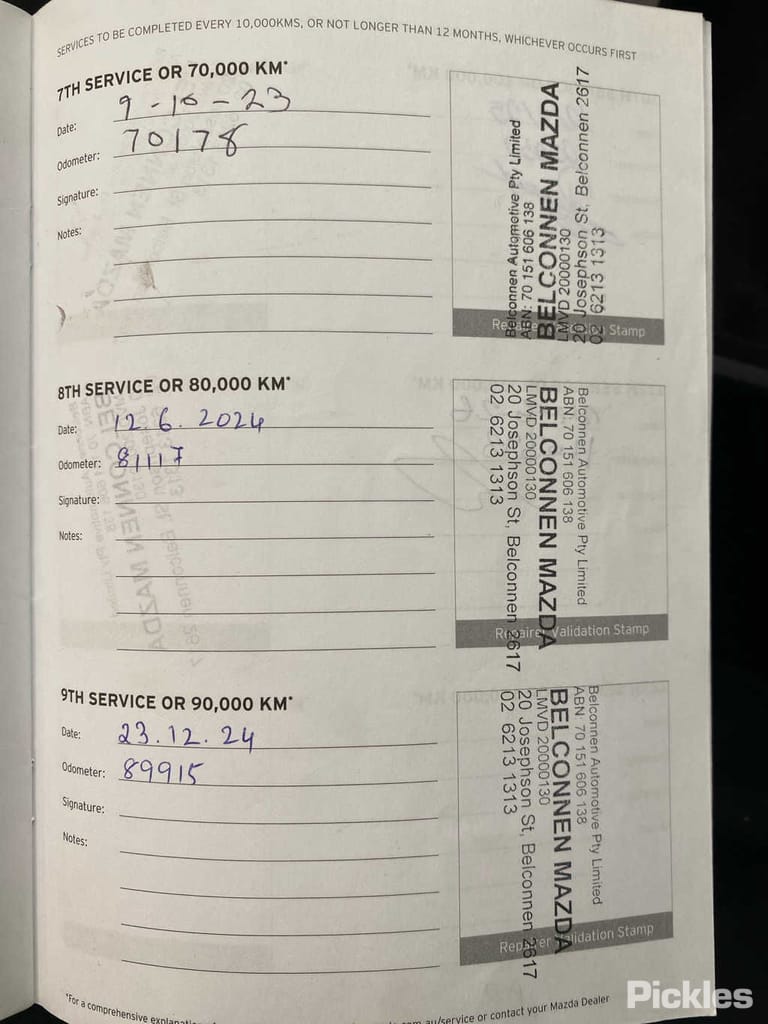 SERVICES TO BE COMPLETED EVERY 10,000KMS, OR NOT LONGER THAN 12 MONTHS, WHICHEVER OCCURS FIRST
7TH SERVICE OR 70,000 KM*
Date: 9-10-23
Odometer: 70178
Signature:
Notes:
Belconnen Automotive Pty Limited
ABN: 70 151 606 138
BELCONNEN MAZDA
LMVD 20000130
20 Josephson St, Belconnen 2617
02 6213 1313
Stamp
8TH SERVICE OR 80,000 KM*
Date: 12.6.2024
Odometer: 81117
Signature:
Notes:
Belconnen Automotive Pty Limited
ABN: 70 151 606 138
BELCONNEN MAZDA
LMVD 20000130
20 Josephson St, Belconnen 2617
02 6213 1313
Repairer Validation Stamp
9TH SERVICE OR 90,000 KM*
Date: 23.12.24
Odometer: 89915
Signature:
Notes:
Belconnen Automotive Pty Limited
ABN: 70 151 606 138
BELCONNEN MAZDA
LMVD 20000130
20 Josephson St, Belconnen 2617
02 6213 1313
Repairer Validation Stamp
*For a comprehensive
au/service or contact your Mazda Dealer
Pickles